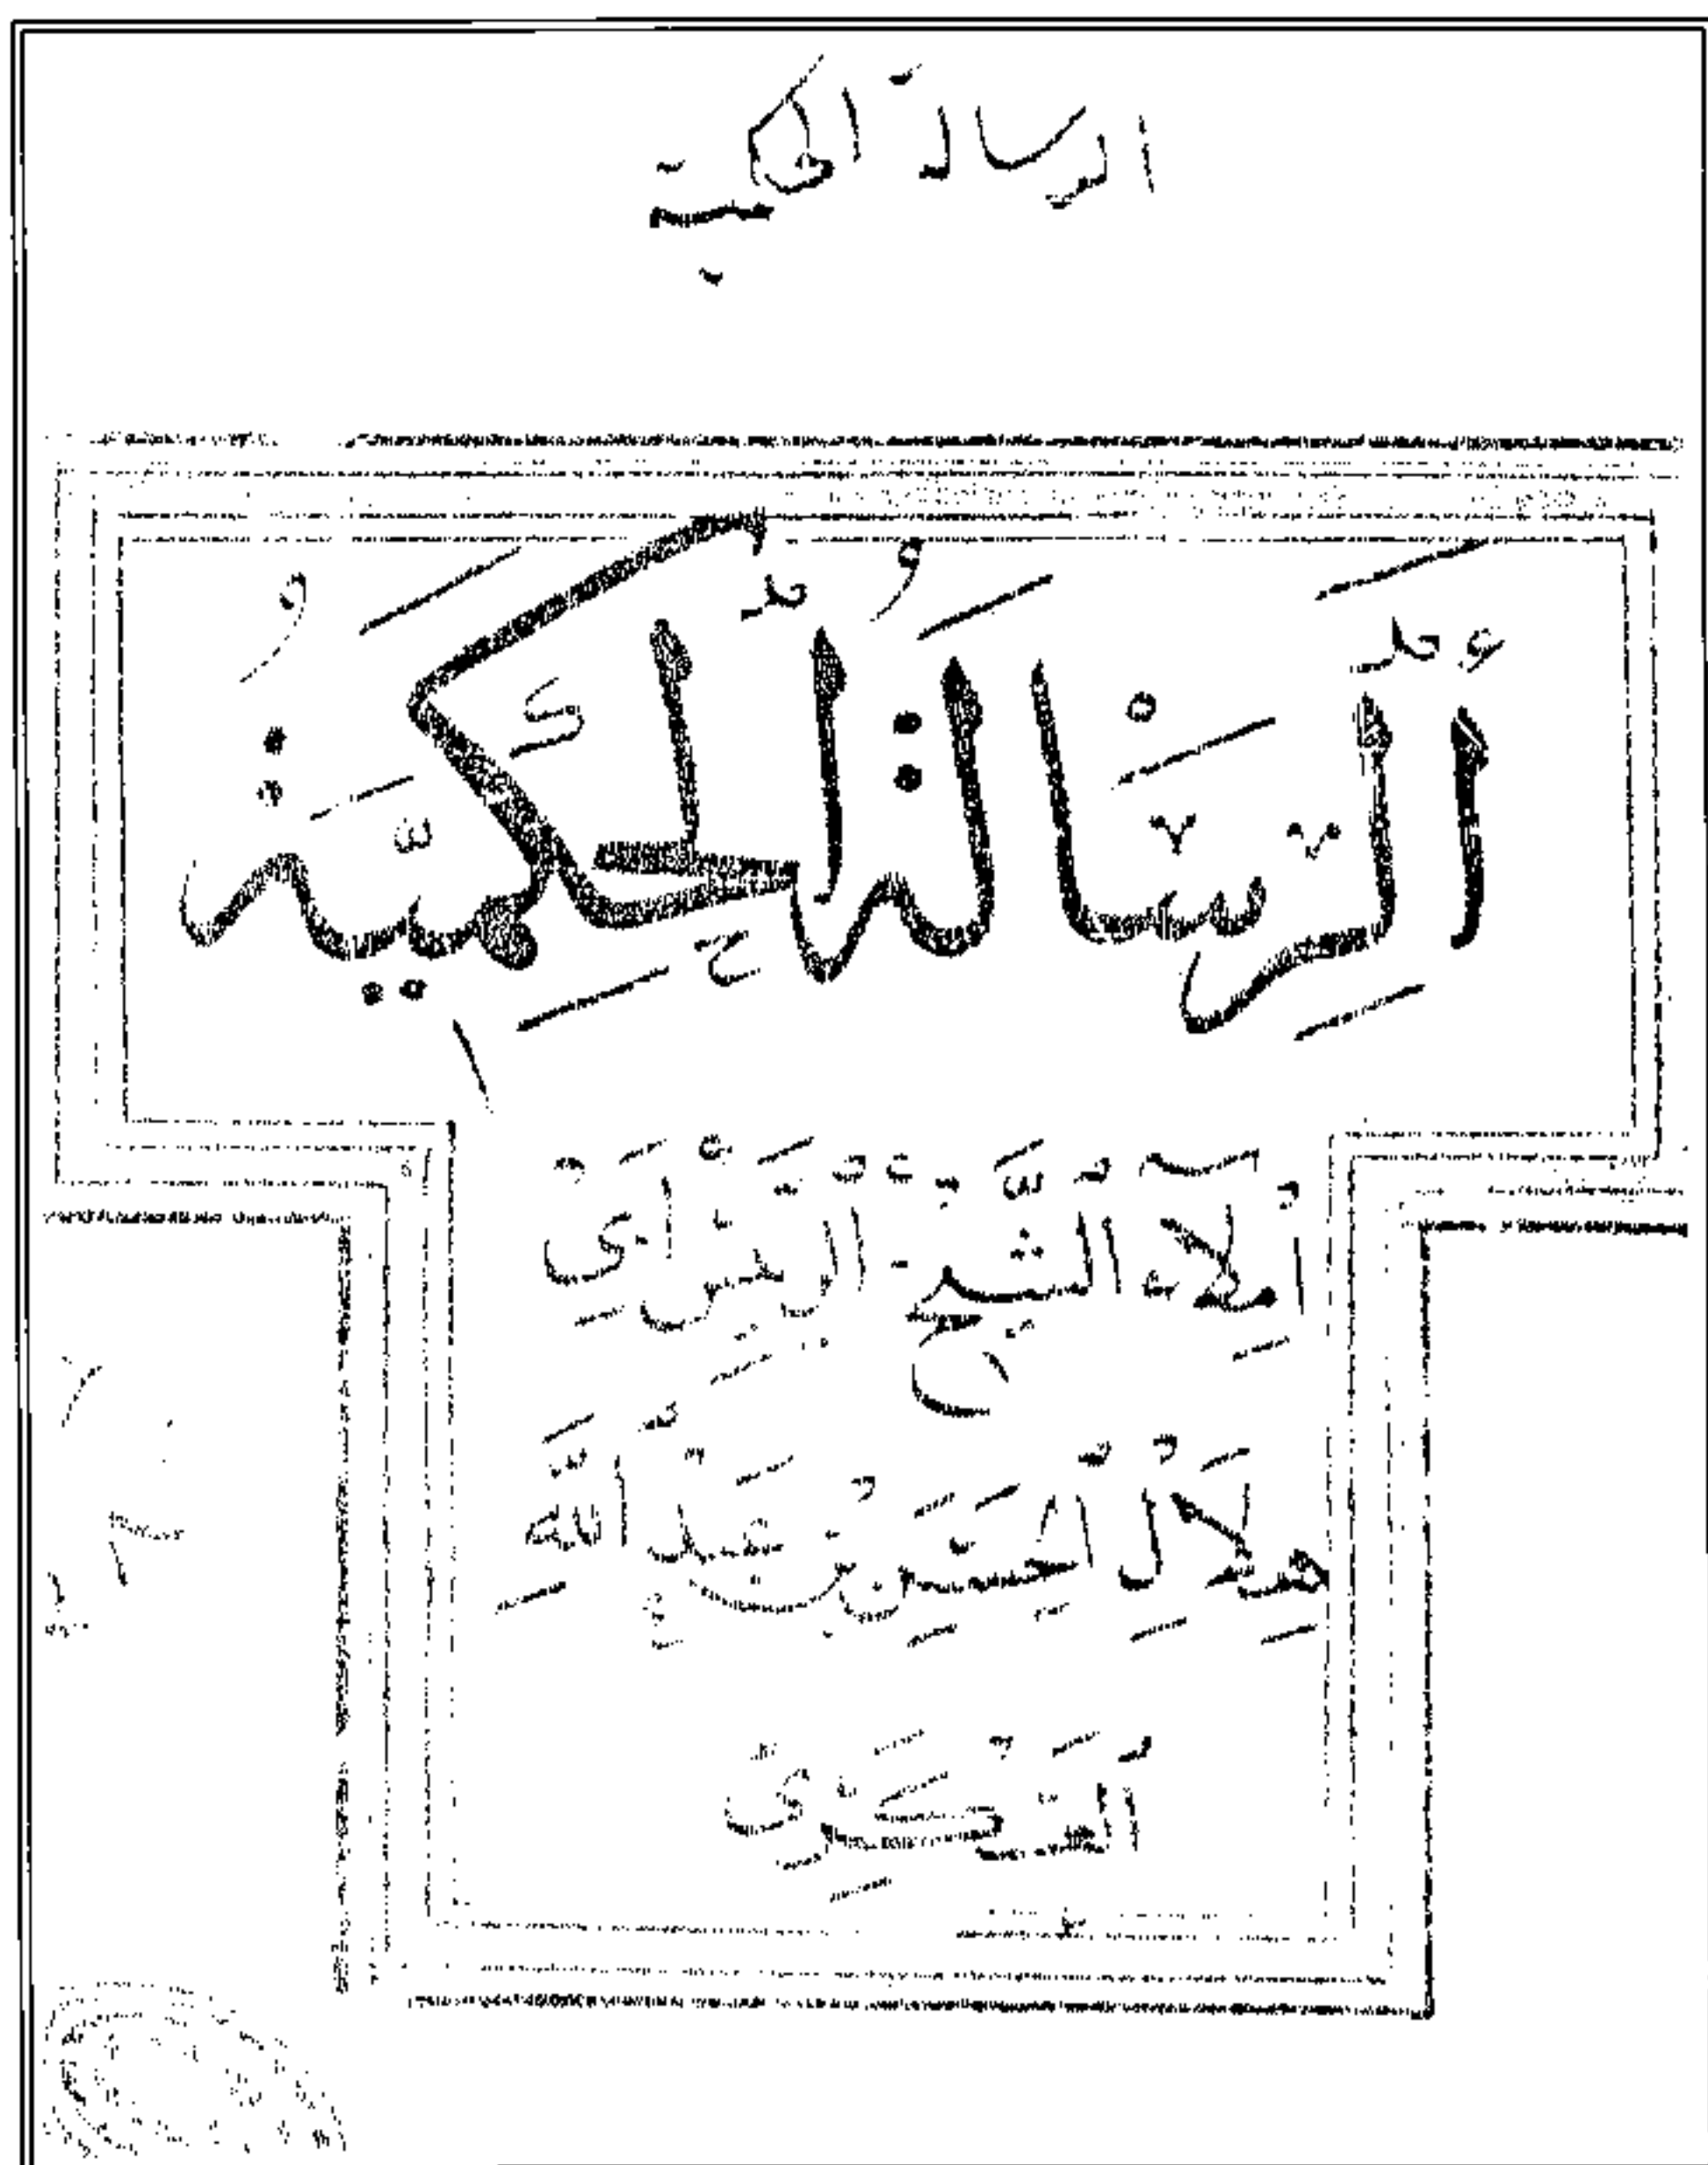 الرسالة الحكمية
الرسالة الحكمية
املاء الشيخ الرئيس ابى
هلال الحسن بن عبد الله
العسكرى